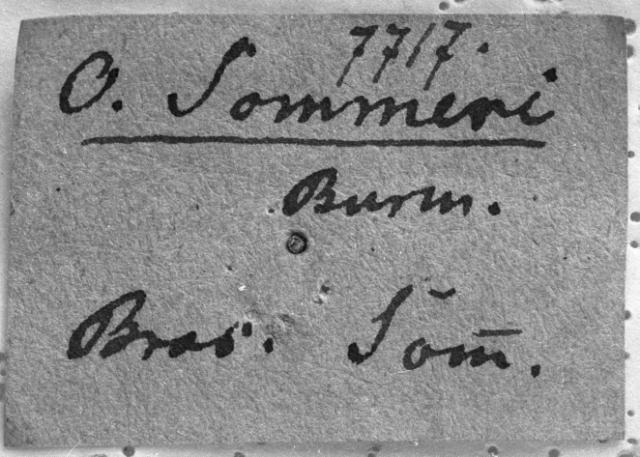 7717.
O. Sommeri
Burm.
Bras. Som̅.